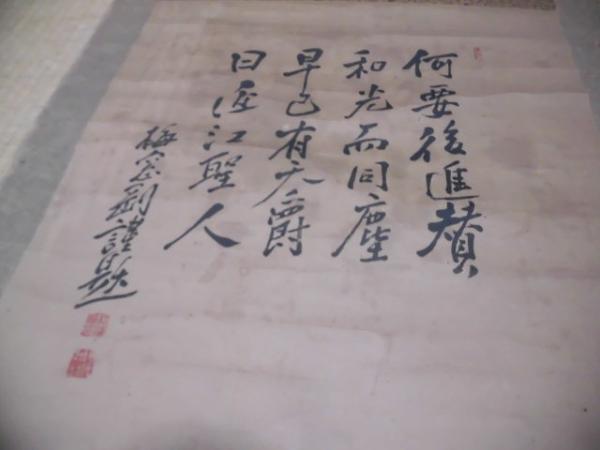 何要後進賛
和光而同塵
早已有天爵
曰近江聖人
梅窓剛謹題